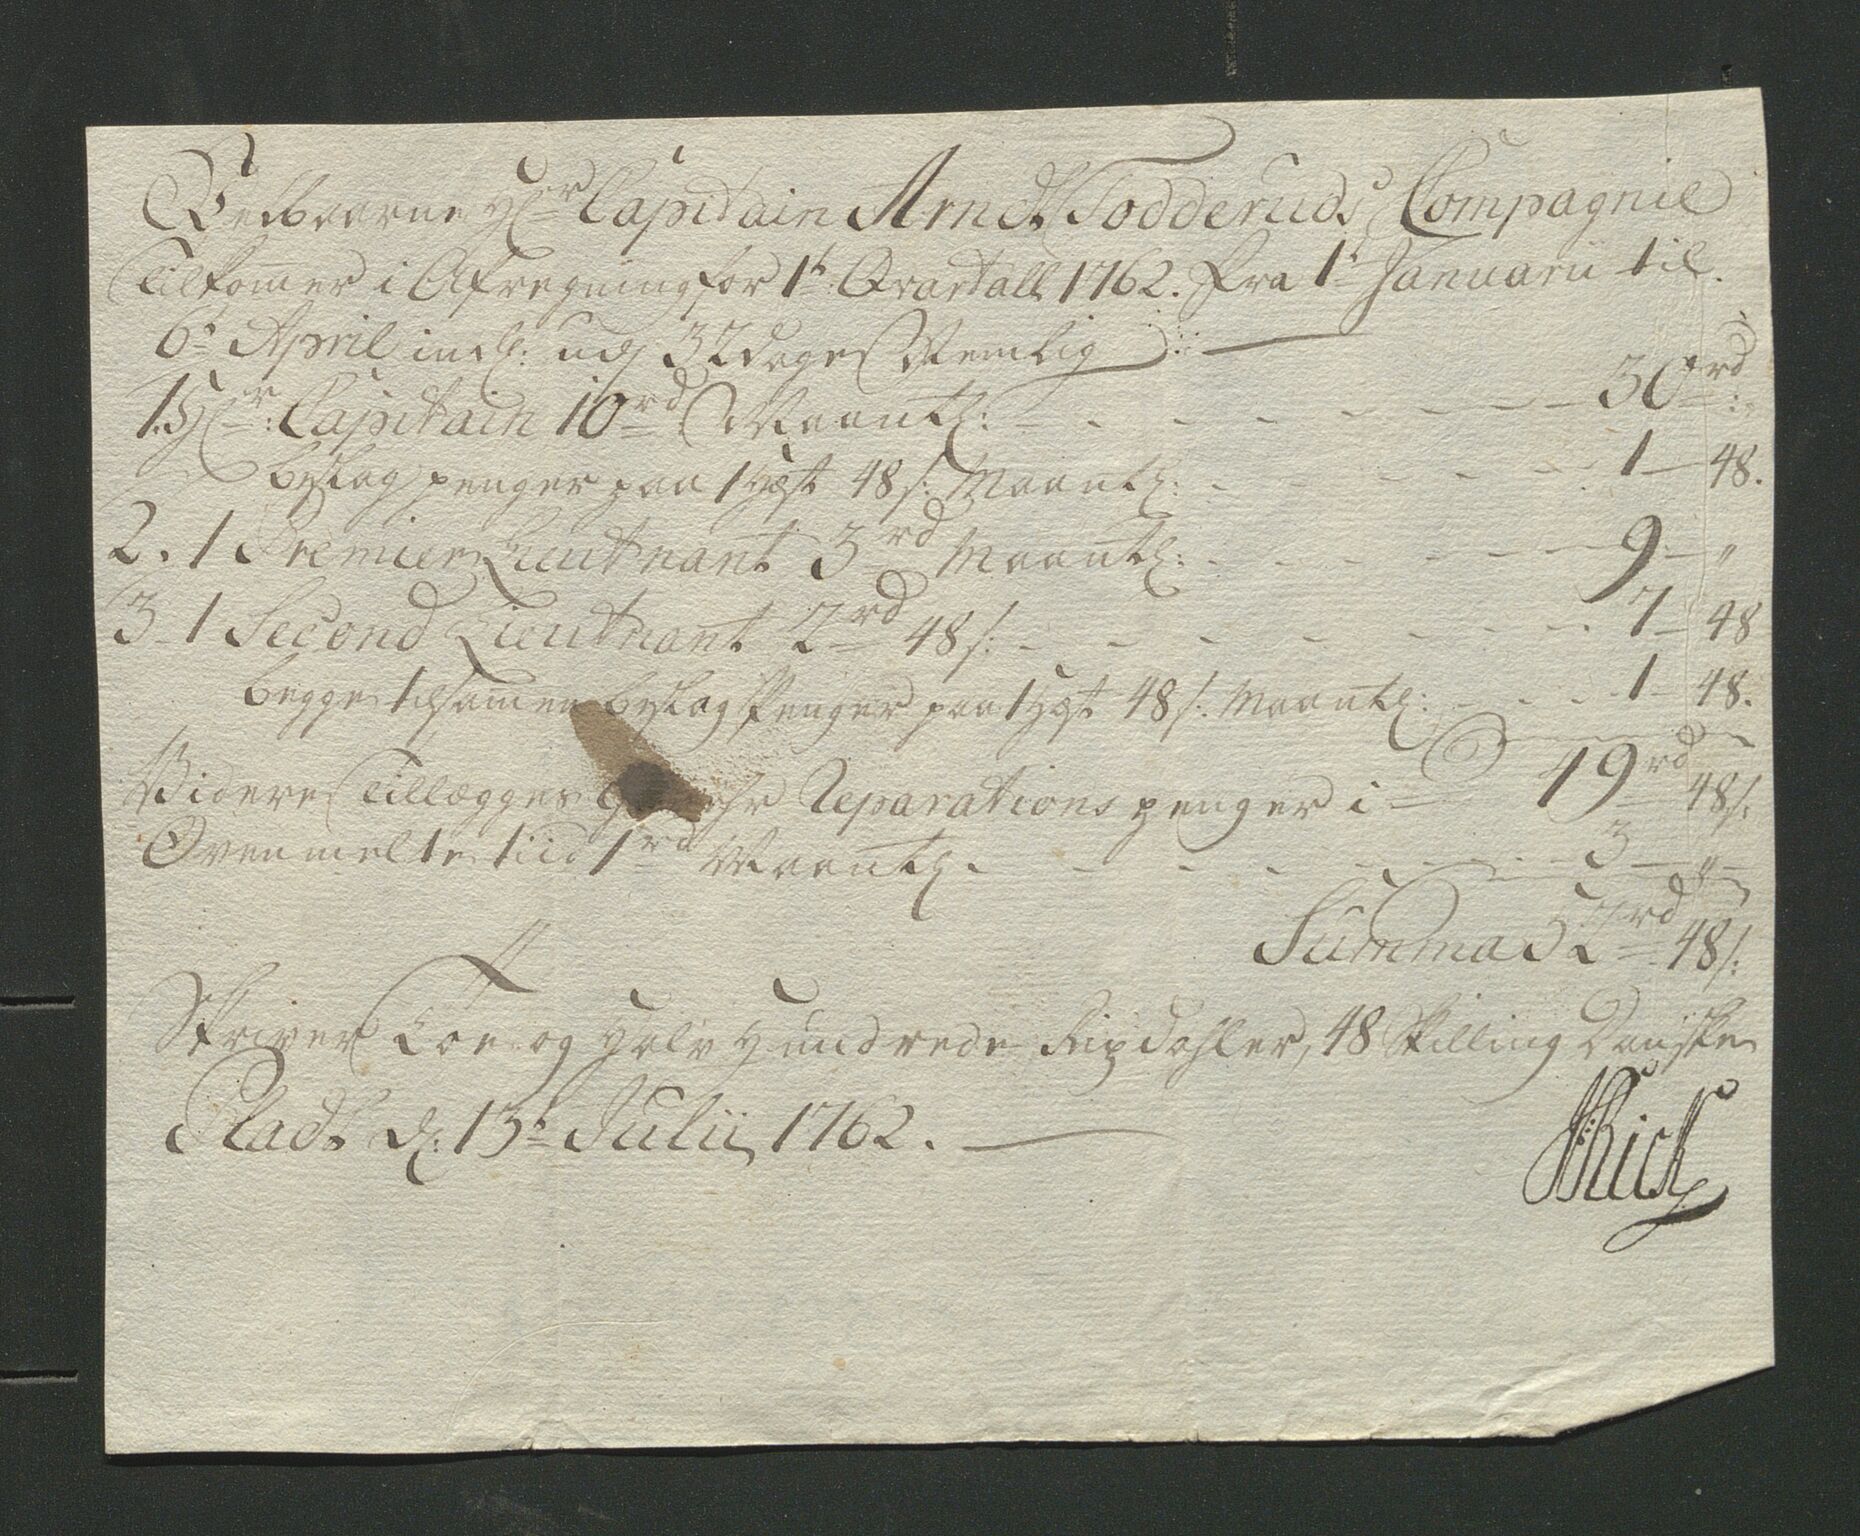 Velbaarne Hr. Capitain Arndt Todderuds Compagnie
Tilkommer i Afregning for 1te Qvartall 1762. fra 1te Januarii til
6te April incl: udj 32 dage Nemblig:
1. Hr: Capitain 10 rd Maantl: - - - 30 rd:
beslag penger paa 1 Hæst 48 s: Maantl: - - - 1 - 48.
2. 1 Premier Lieutnant 3 rd Maantl: - - - 9 - "
3 - 1 Second Lieutnant 2 rd 48 s: - - - 7 - 48
begge tilsammen beslag Penger paa 1 Hæst 48 s. Maantl: - - - 1 - 48.
49 rd 48 s:
Videre Tillægges Gewehr Reparations penger i
Ovenmelte tiid 1 rd Maantl. - - - 3 - "
Summa 52 rd 48 s:
Skriver Toe og Halv Hundrede Rixdahler, 48 Skilling Danske
Stadt d: 13te Julii 1762.